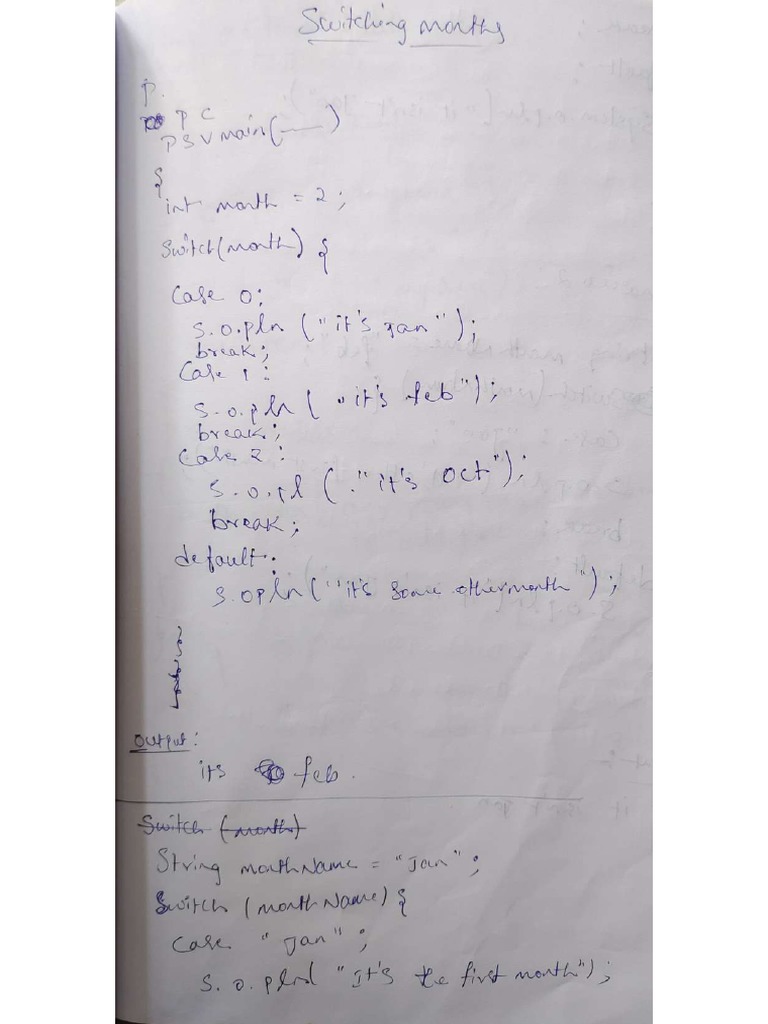 Switching months
P.
P C
PSV main(——)
{
int month = 2;
Switch(month) {
Case 0:
S.o.pln ("it's Jan");
break;
Case 1:
S.o.pln ("it's feb");
break;
Case 2:
S.o.pl ("it's Oct");
break;
default:
S.opln("it's some other month");
Output:
its feb.
Switch (month)
String monthName = "Jan";
Switch (monthName) {
Case "Jan";
S.o.pln( "It's the first month");